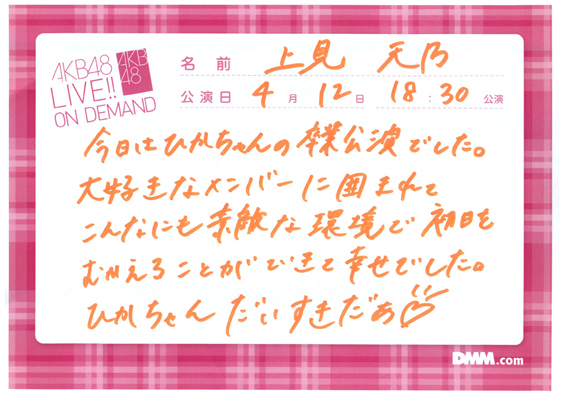 AKB48
LIVE!!
ON DEMAND
AKB
48
名前 上見 天乃
公演日 4月12日 18:30公演
今日はひかちゃんの卒業公演でした。
大好きなメンバーに囲まれて
こんなにも素敵な環境で初日を
むかえることができて幸せでした。
ひかちゃんだいすきだぁ
DMM.com